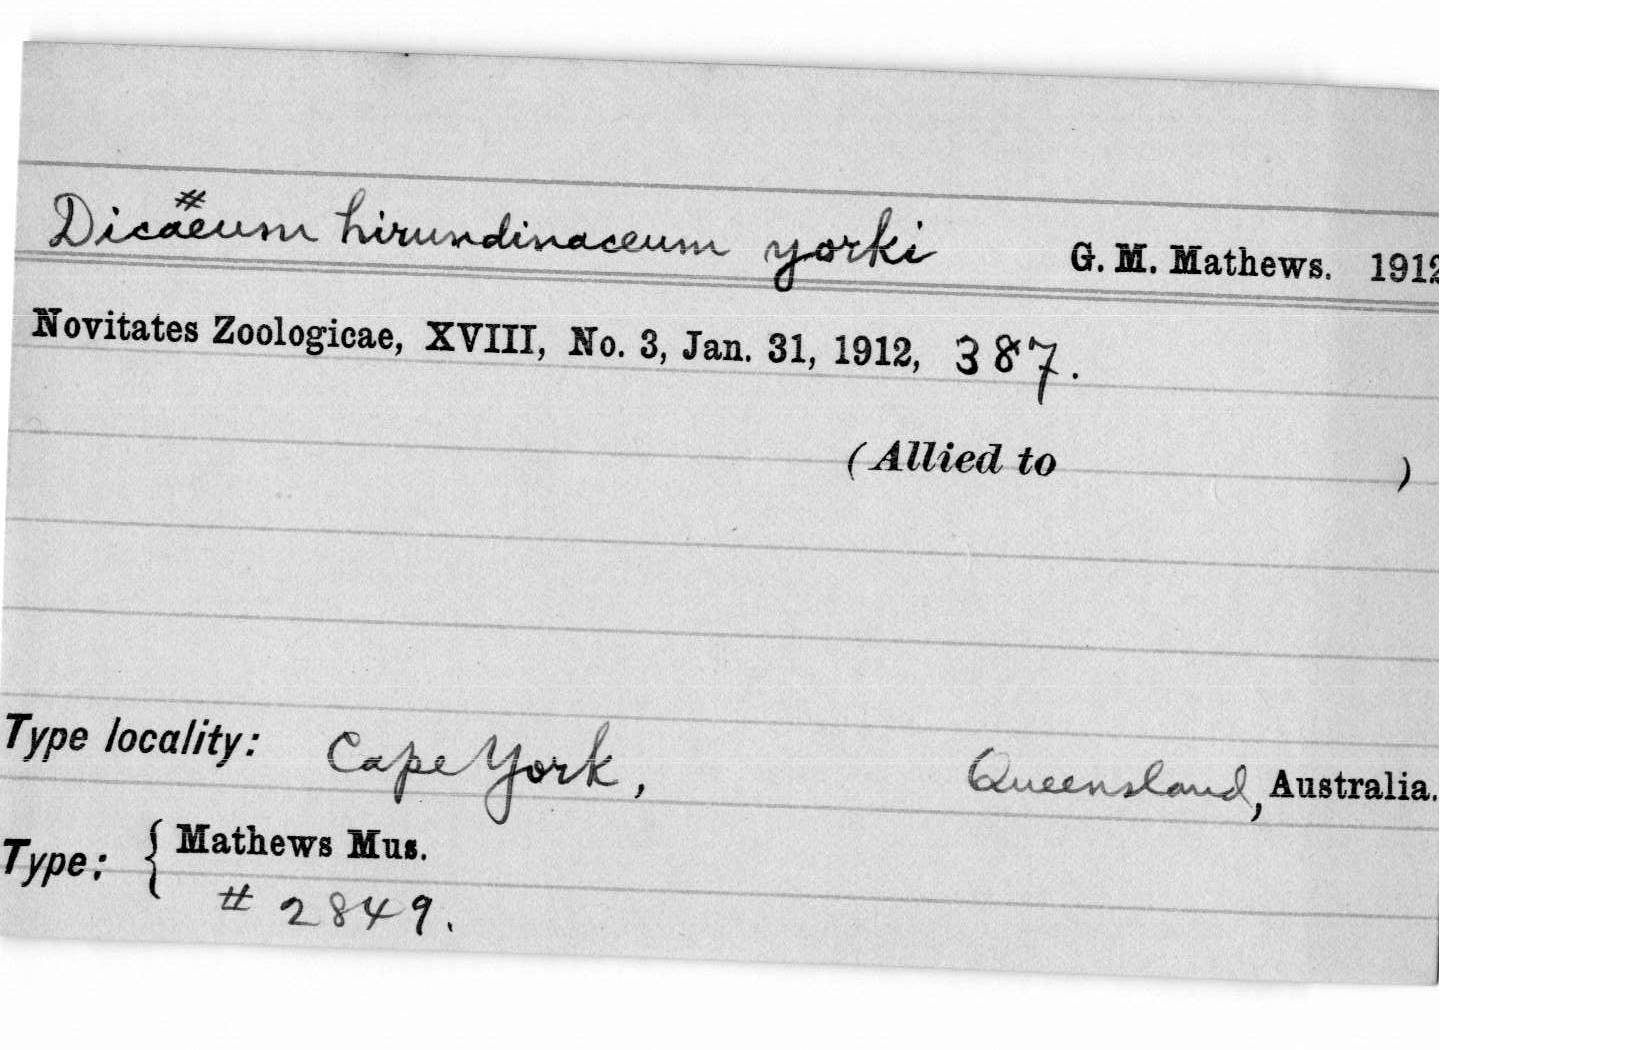 #
Dicaeum hirundinaceum yorki G. M. Mathews. 1912
Novitates Zoologicae, XVIII, No. 3, Jan. 31, 1912, 387.
(Allied to )
Type locality: Cape York, Queensland, Australia.
Type: { Mathews Mus.
# 2849.